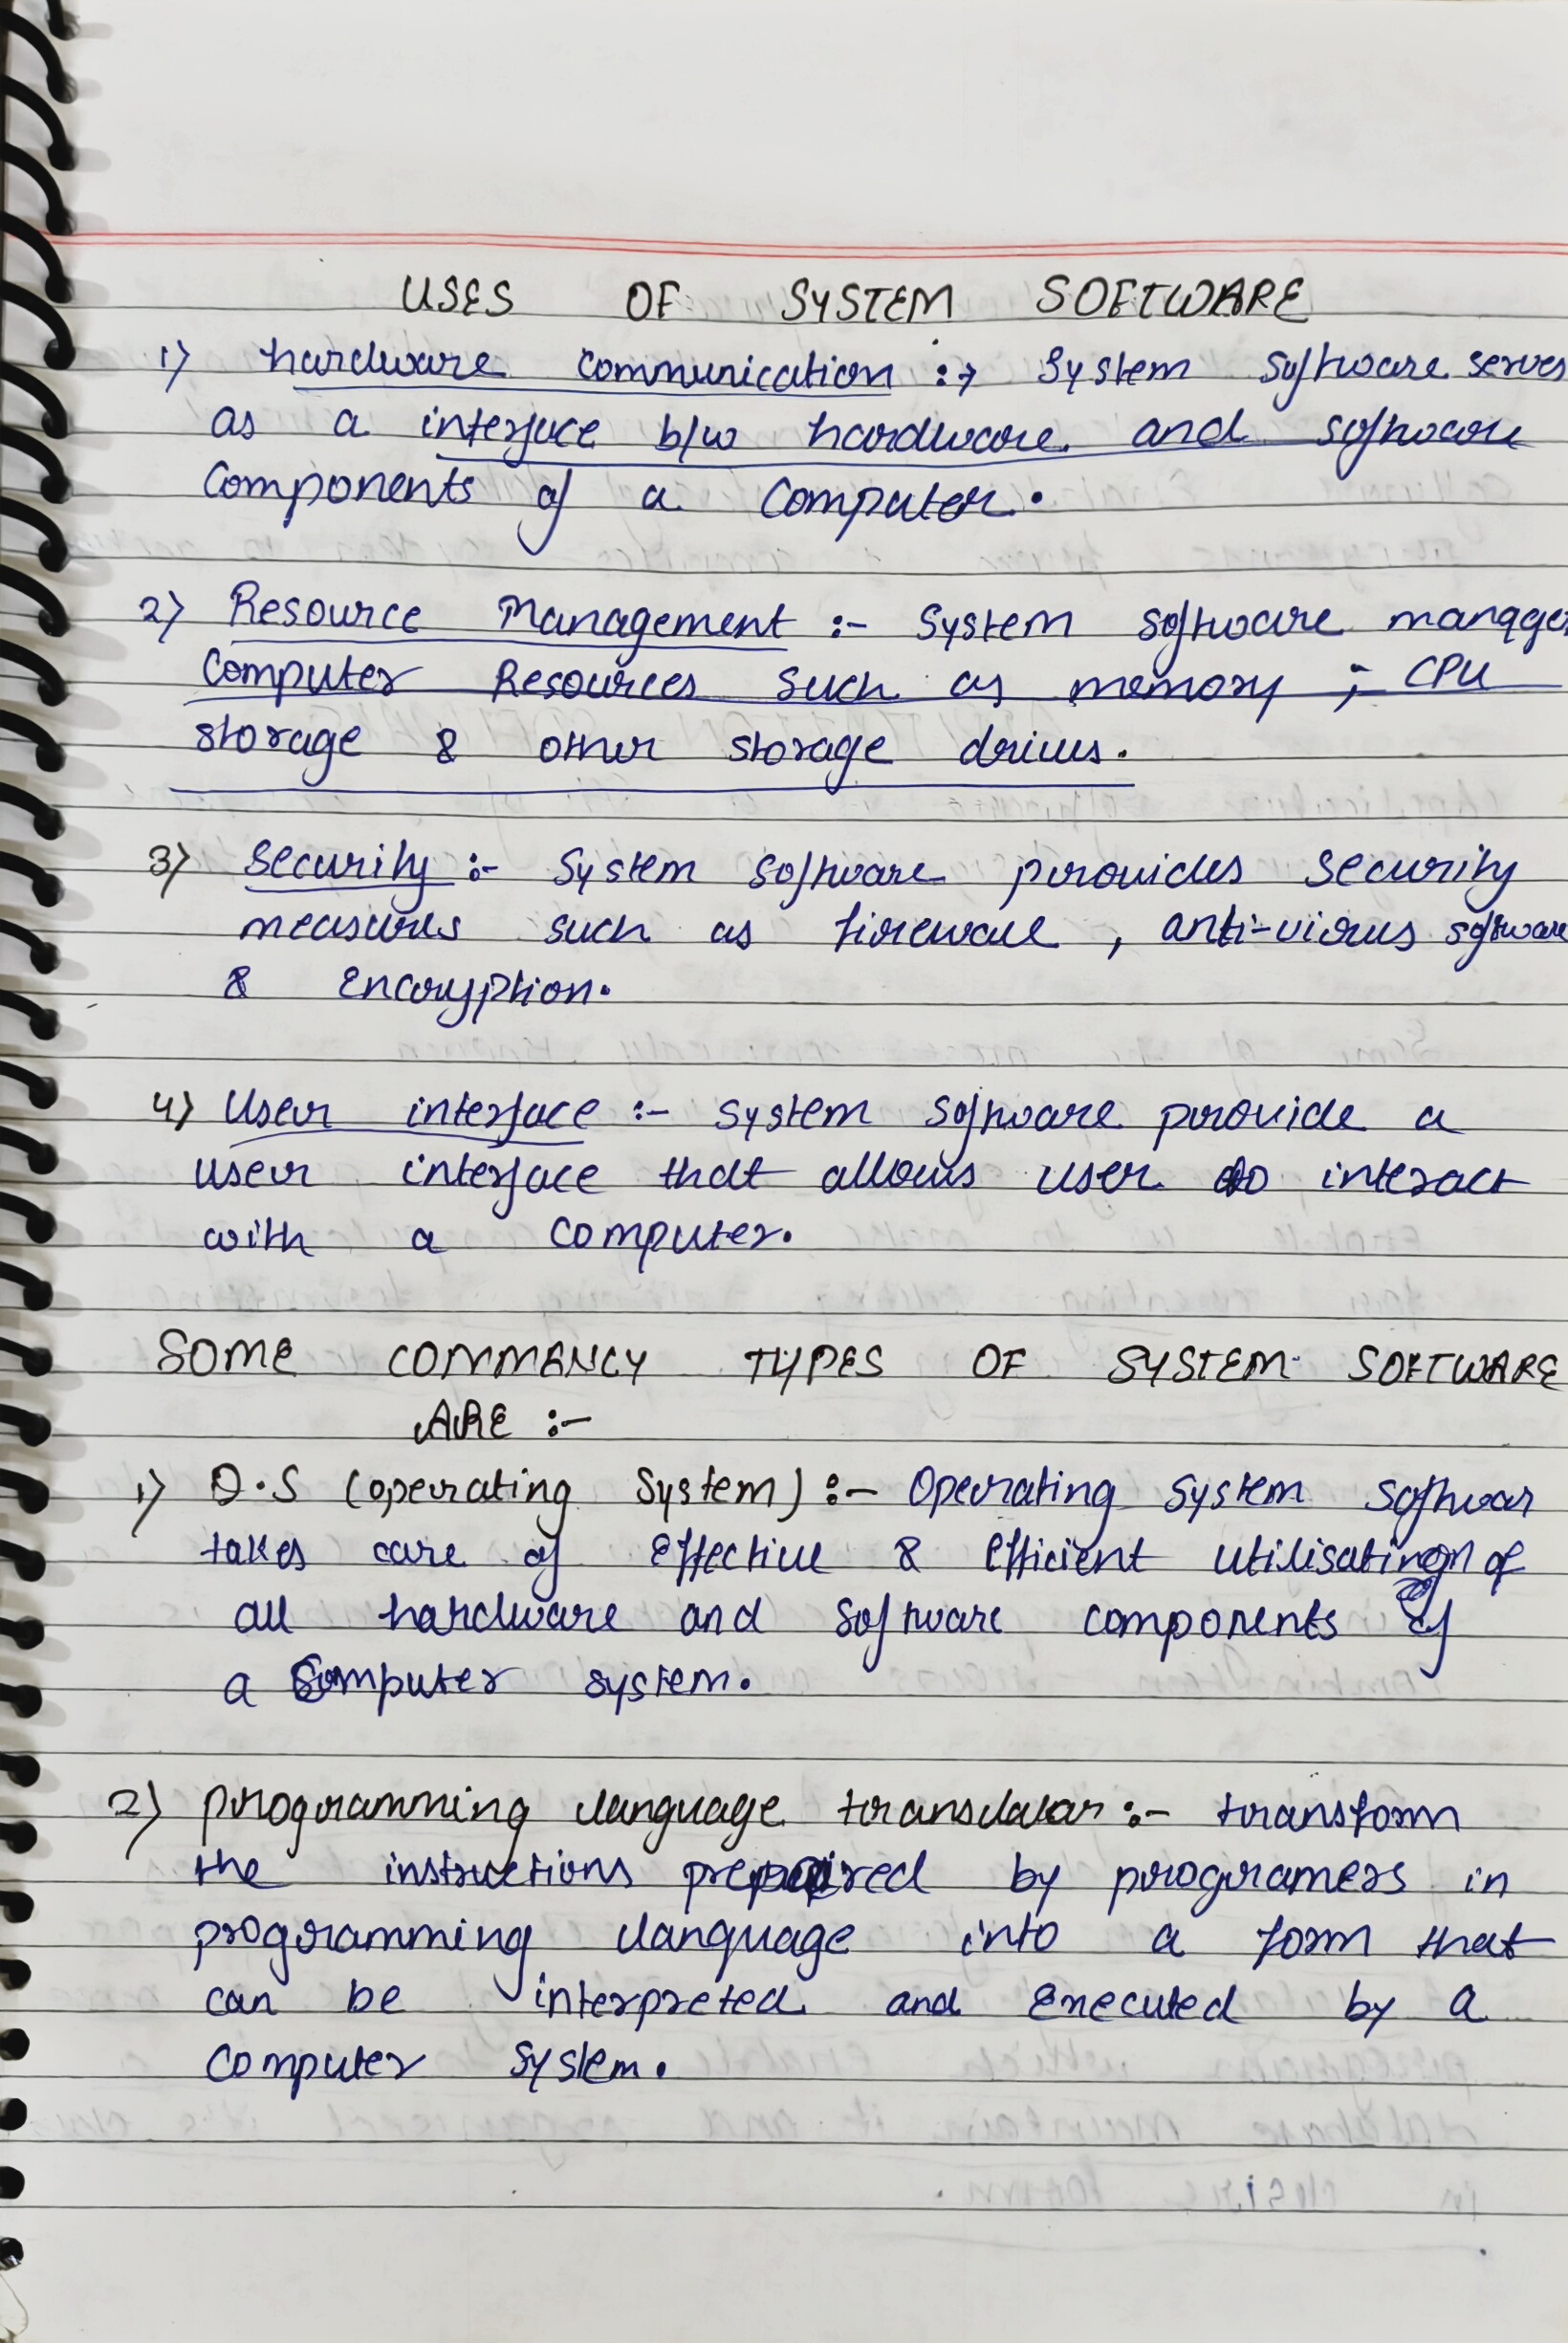 USES OF SYSTEM SOFTWARE
1) hardware communication :→ System software serves
as a interface b/w hardware and software
components of a computer.
2) Resource Management :- System software manages
computer Resources such as memory ; CPU
storage & other storage drives.
3) Security :- System software provides security
measures such as firewall , anti-virus software
& Encryption.
4) User interface :- System software provide a
user interface that allows user to interact
with a computer.
SOME COMMANCY TYPES OF SYSTEM SOFTWARE
ARE :-
1) O.S (operating System) :- Operating System Softwar
takes care of Effective & Efficient utilisation of
all hardware and software components of
a computer system.
2) programming language translator :- transform
the instructions prepaired by programers in
programming language into a form that
can be interpreted and Executed by a
computer system.